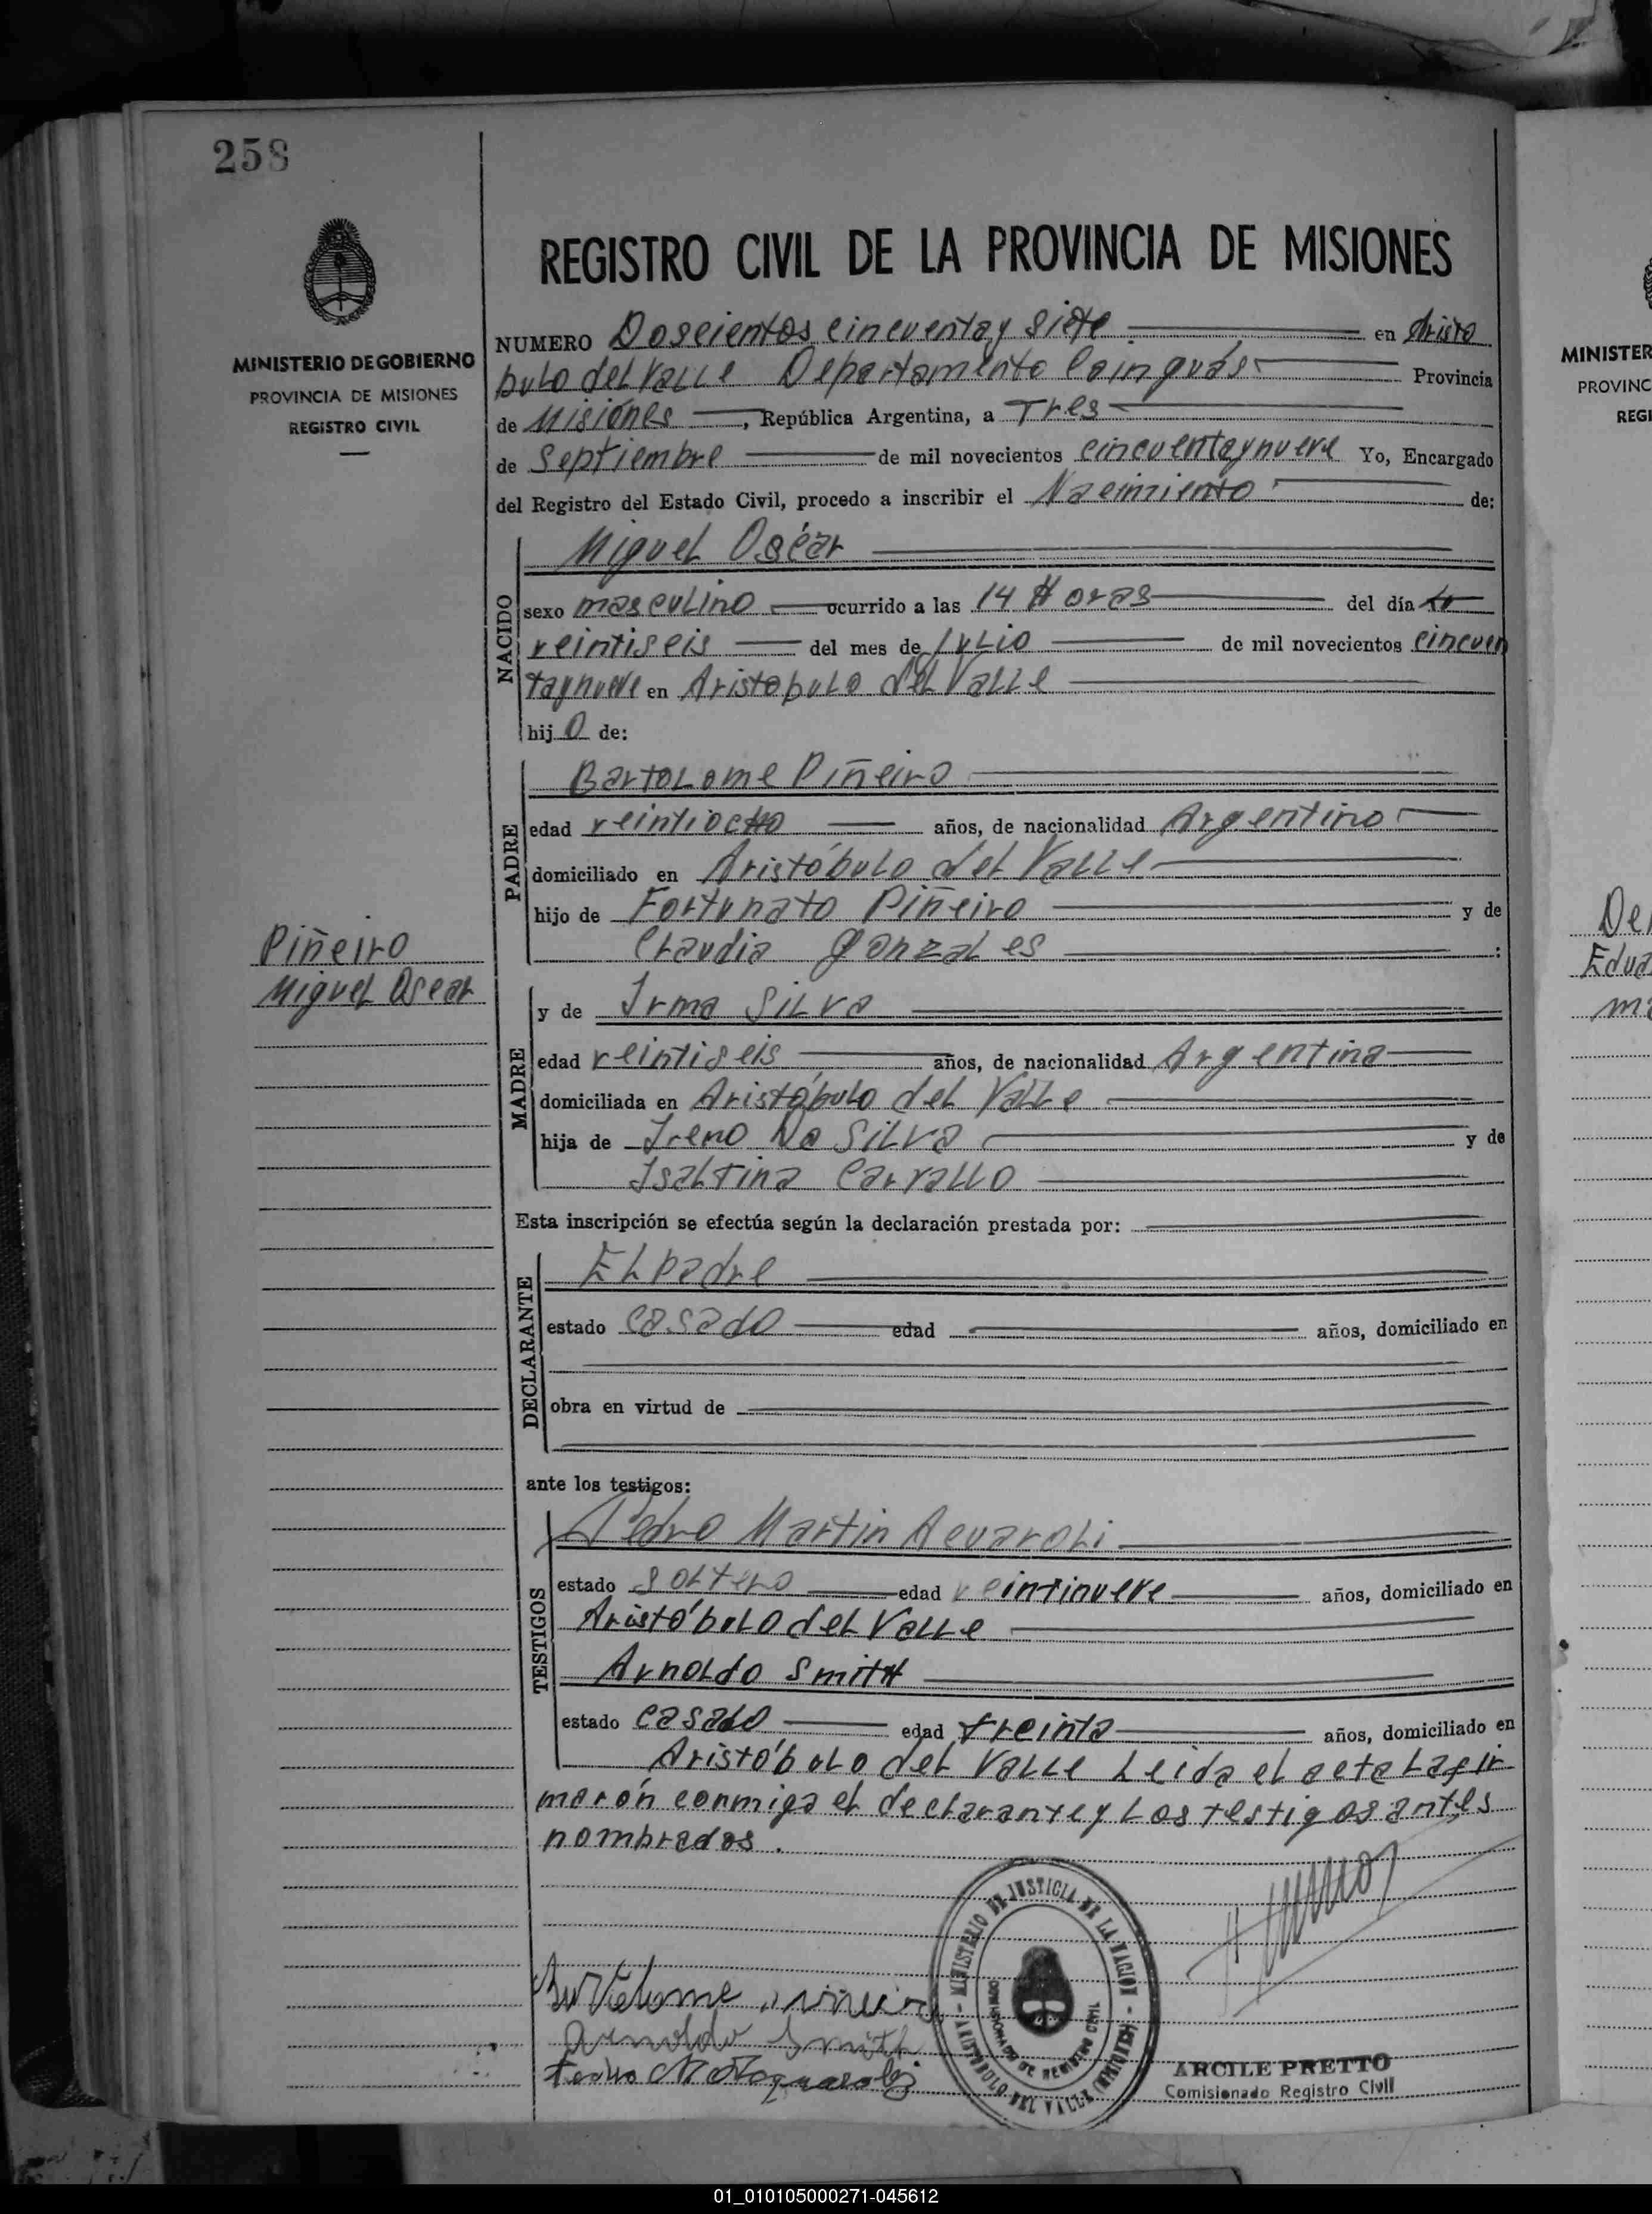 258
MINISTERIO DE GOBIERNO
PROVINCIA DE MISIONES
REGISTRO CIVIL
Piñeiro
Miguel Oscar
REGISTRO CIVIL DE LA PROVINCIA DE MISIONES
NUMERO Doscientos cincuenta y siete en Aristo
bulo del Valle Departamento Cainguás Provincia
de Misiones, República Argentina, a Tres
de Septiembre de mil novecientos cincuentaynueve Yo, Encargado
del Registro del Estado Civil, procedo a inscribir el Nacimiento de:
NACIDO
Miguel Oscar
sexo masculino ocurrido a las 14 Horas del día
veintiseis del mes de Julio de mil novecientos cincuen
taynueve en Aristobulo del Valle
hijo de:
PADRE
Bartolome Piñeiro
edad veintiocho años, de nacionalidad Argentino
domiciliado en Aristóbulo del Valle
hijo de Fortunato Piñeiro y de
Claudia Gonzales :
MADRE
y de Irma Silva
edad veintiseis años, de nacionalidad Argentina
domiciliada en Aristóbulo del Valle
hija de Ireno Da Silva y de
Isaltina Carvallo
Esta inscripción se efectúa según la declaración prestada por:
DECLARANTE
El padre
estado casado edad años, domiciliado en
obra en virtud de
ante los testigos:
TESTIGOS
Pedro Martin Acuaroli
estado soltero edad veintinueve años, domiciliado en
Aristóbulo del Valle
Arnoldo Smith
estado casado edad treinta años, domiciliado en
Aristóbulo del Valle Leida el acta la fir
marón conmigo el declarante y los testigos antes
nombrados.
MINISTERIO DE JUSTICIA DE LA NACION
COMISIONADO DE REGISTRO CIVIL
ARISTOBULO DEL VALLE (MISIONES)
Bartolome
Arnoldo Smith
Pedro M
ARCILE PRETTO
Comisionado Registro Civil
MINISTER
PROVINC
REGI
De
Edua
ma
01_010105000271-045612